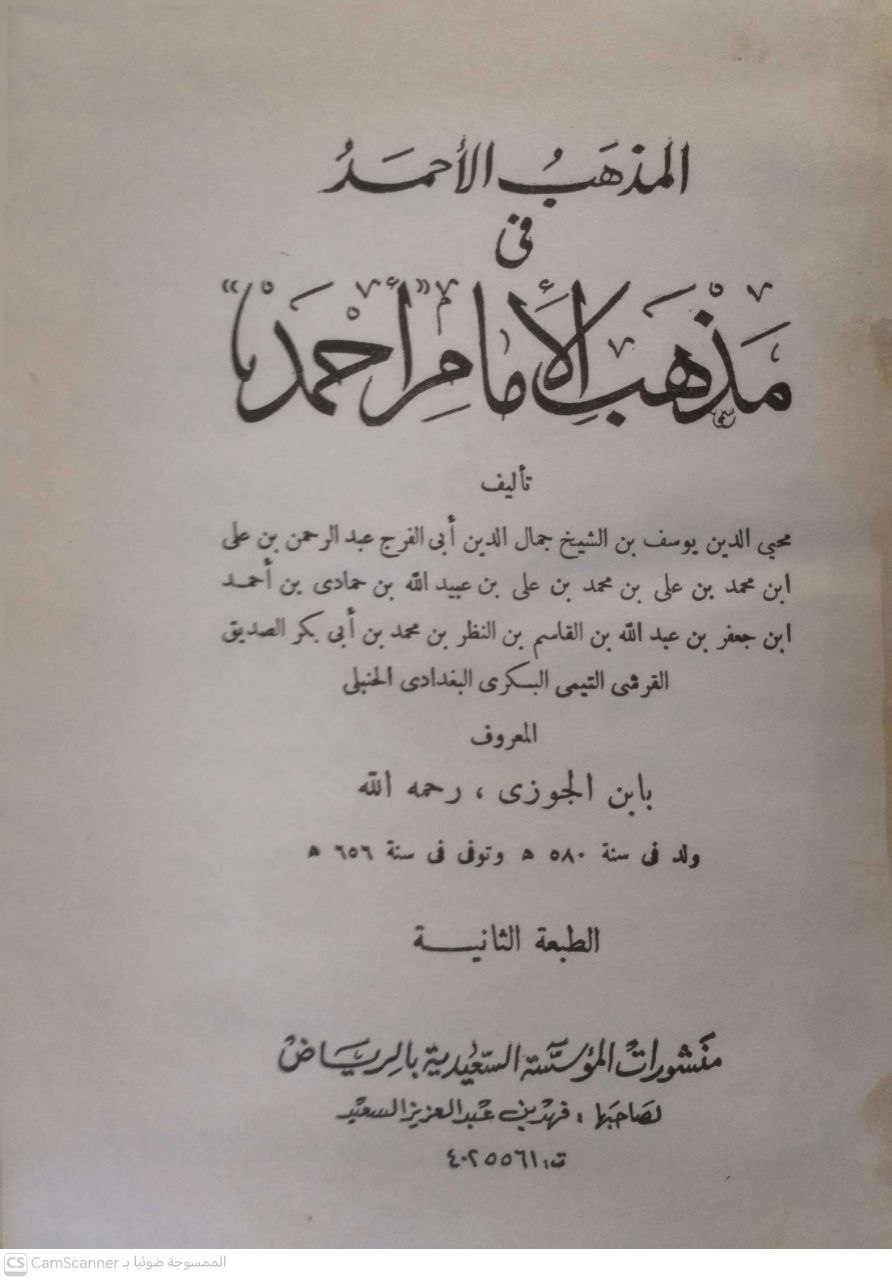 المذهَبُ الأحمَدُ
فى
مَذْهَبِ الأَمامِ «أَحْمَدْ»
تأليف
محيي الدين يوسف بن الشيخ جمال الدين أبى الفرج عبد الرحمن بن على
ابن محمد بن على بن محمد بن على بن عبيد الله بن حمادى بن أحمد
ابن جعفر بن عبد الله بن القاسم بن النظر بن محمد بن أبى بكر الصديق
القرشى التيمى البكرى البغدادى الحنبلى
المعروف
بابن الجوزى ، رحمه الله
ولد فى سنة ٥٨٠ ه وتوفى فى سنة ٦٥٦ ه
الطبعة الثانيـــة
منشورات المؤسسة السعيدية بالرياض
لصاحبها : فهد بن عبد العزيز السعيد
ت: ٤٠٢٥٥٦١
CS CamScanner الممسوحة ضوئيا بـ